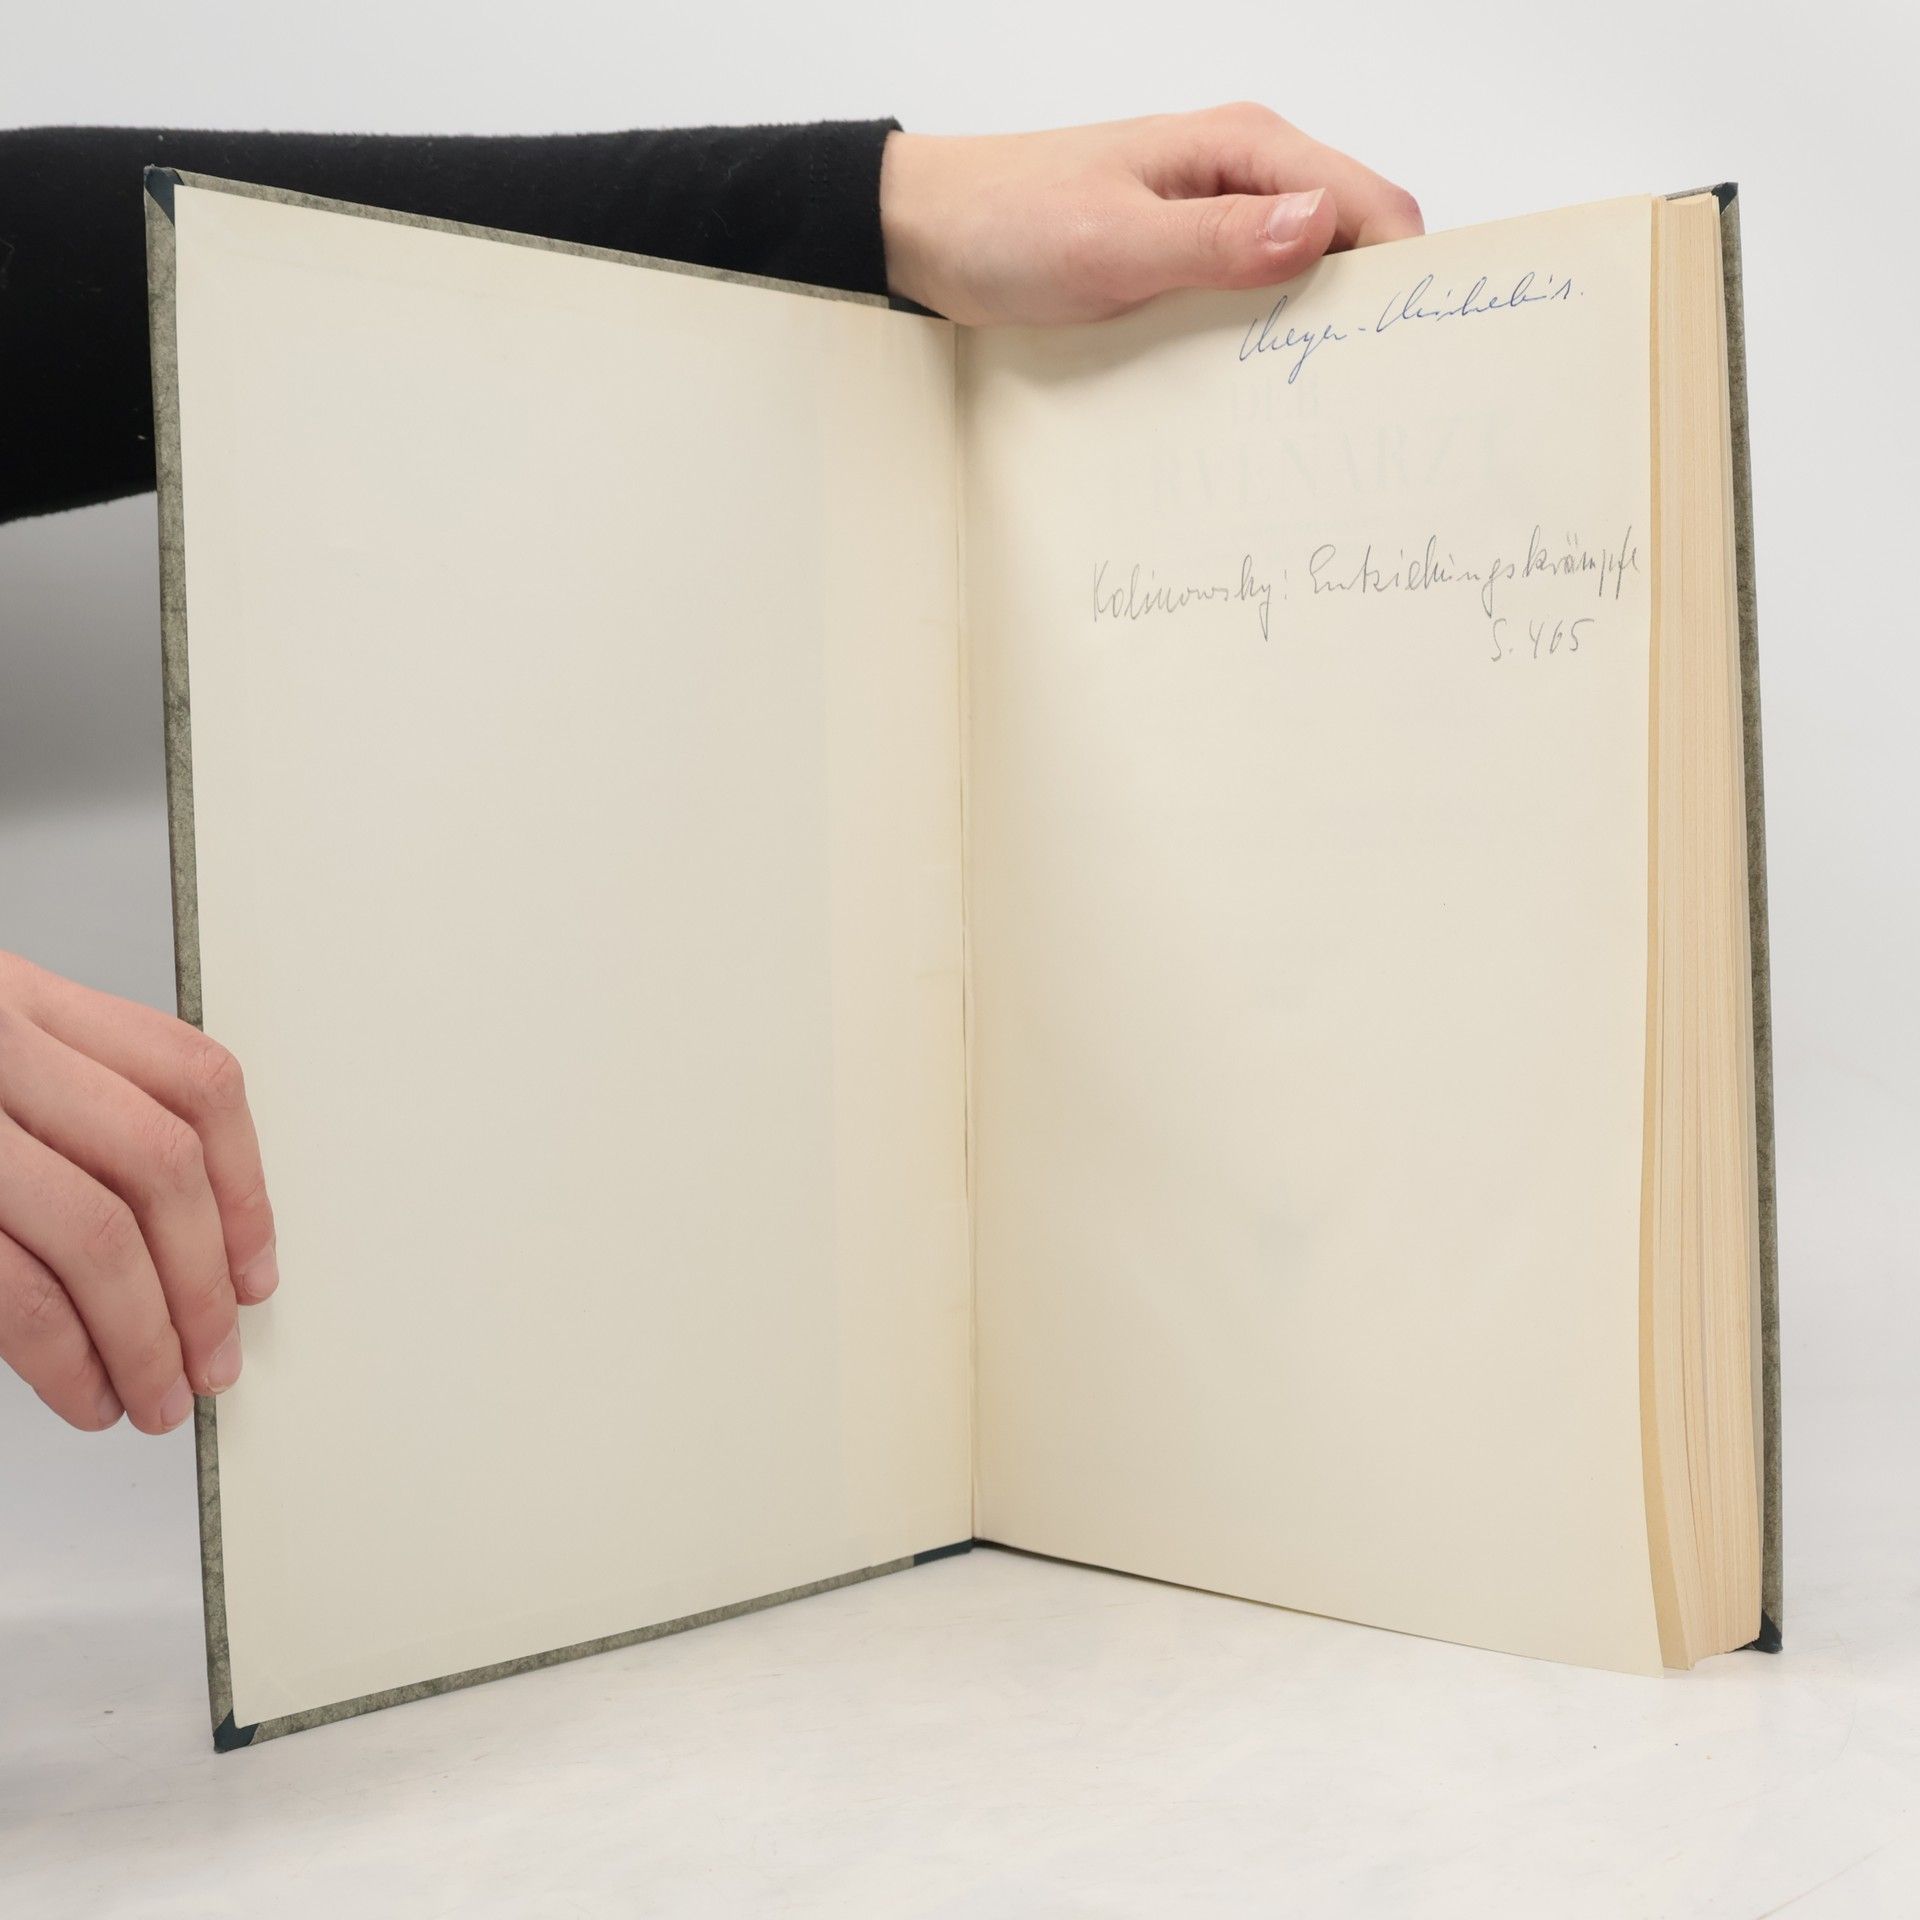 Meyer-Mickeleit.
DER
NERVENARZT
Kalinowsky: Entziehungskrämpfe
S. 465